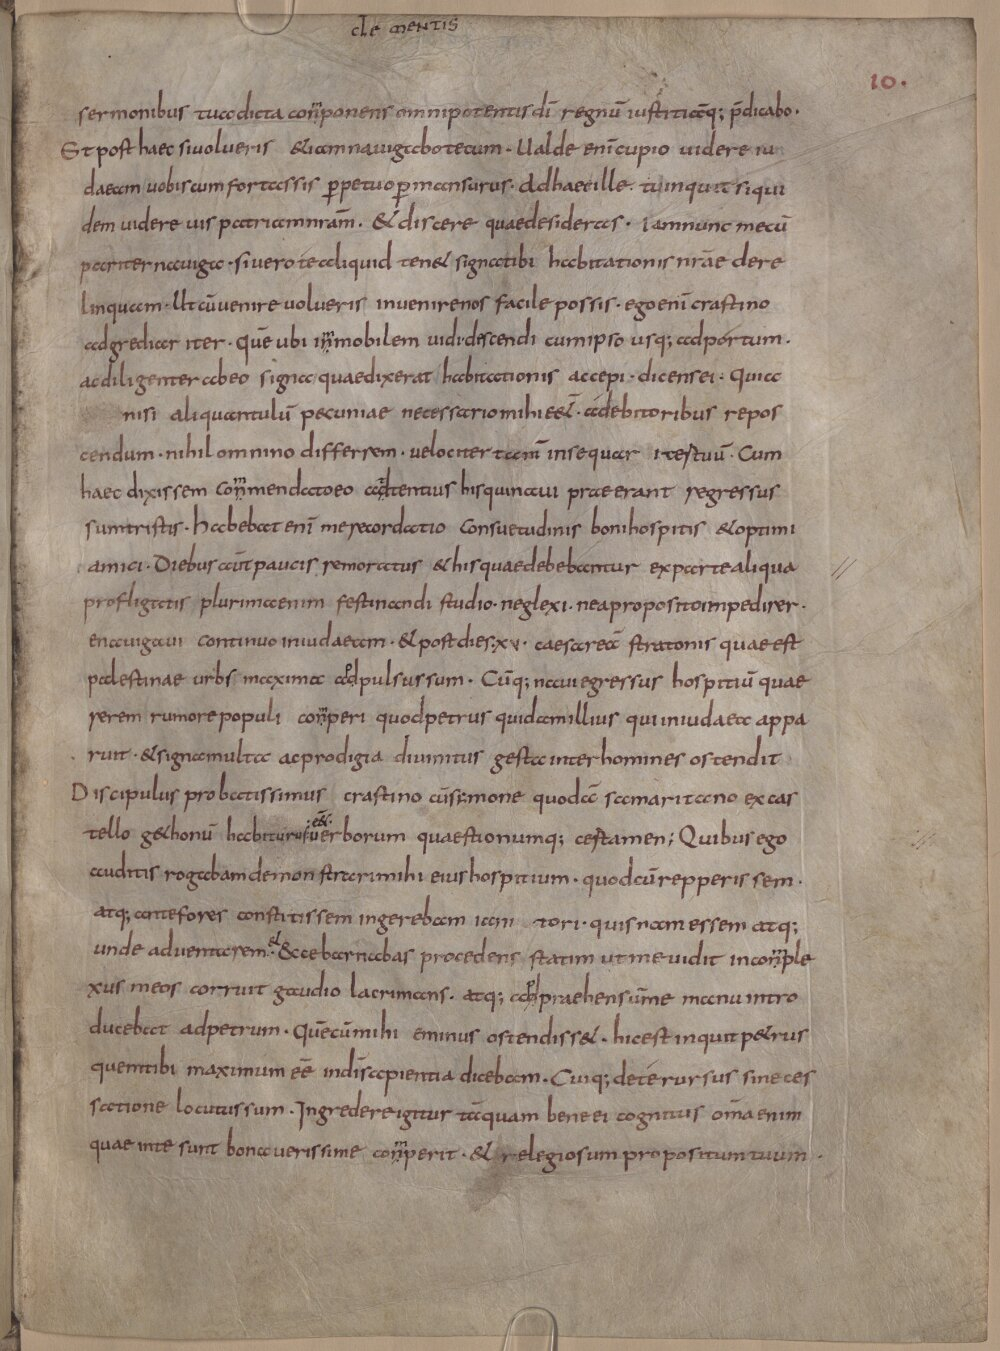 cle mentis
10.
sermonibus tua dicta conponens omnipotentis dī regnū iustitiāq; p̄dicabo.
Et post haec si volueris & iam navigabo tecum. Ualde enī cupio videre iu
daeam vobiscum fortassis ꝑpetuo ꝑmansurus. Ad haec ille. tu inquit si qui
dem videre vis patriam nrām. & discere quae desideras. iam nunc mecū
pariter naviga. si vero te aliquid ten& signa tibi habitationis nrāe dere
linquam. Ut cū venire volueris invenire nos facile possis. ego enī crastino
adgrediar iter. Quē ubi inmobilem vidi. descendi cum ipso usq; ad portum.
ac diligenter abeo signa quae dixerat habitationis accepi. dicens ei. Quia
nisi aliquantulū pecuniae necessario mihi eēt̄. a debitoribus repos
cendum. nihil omnino differrem. velociter tam̄ insequar iter tuū. Cum
haec dixissem commendato eo attentius his qui navi praeerant regressus
sum tristis. Habebat enī me recordatio consuetudinis boni hospitis & optimi
amici. Diebus aūt paucis remoratus & his quae debebantur ex parte aliqua
profligatis plurima enim festinandi studio. neglexi. ne a proposito impedirer.
enavigavi continuo in iudaeam. & post dies. xv. caesareā stratonis quae est
palestinae urbs maxima appulsus sum. Cūq; navi egressus hospitiū quae
rerem rumore populi comperi quod petrus quidam illius qui in iudaea appa
ruit. & signa multa ac prodigia divinitus gesta inter homines ostendit
Discipulus probatissimus crastino cū simone quodā samaritano ex cas
tello gethonū habiturus eēt. verborum quaestionumq; certamen; Quibus ego
auditis rogabam demonstrari mihi eius hospitium. quod cū repperissem.
atq; ante fores constitissem ingerebam ian tori. quis nam essem atq;
unde adventarem. & ecce barnabas procedens statim ut me vidit in conple
xus meos corruit gaudio lacrimans. atq; apprahensūme manu intro
ducebat ad petrum. Quē cū mihi eminus ostendiss&. hic est inquit p&rus
quem tibi maximum eē in dī sapientia dicebam. Cuiq; de te rursus sine ces
satione locutus sum. Ingredere igitur tāquam bene ei cognitus om̄a enim
quae in te sunt bona verissime comperit. & relegiosum propositum tuum.